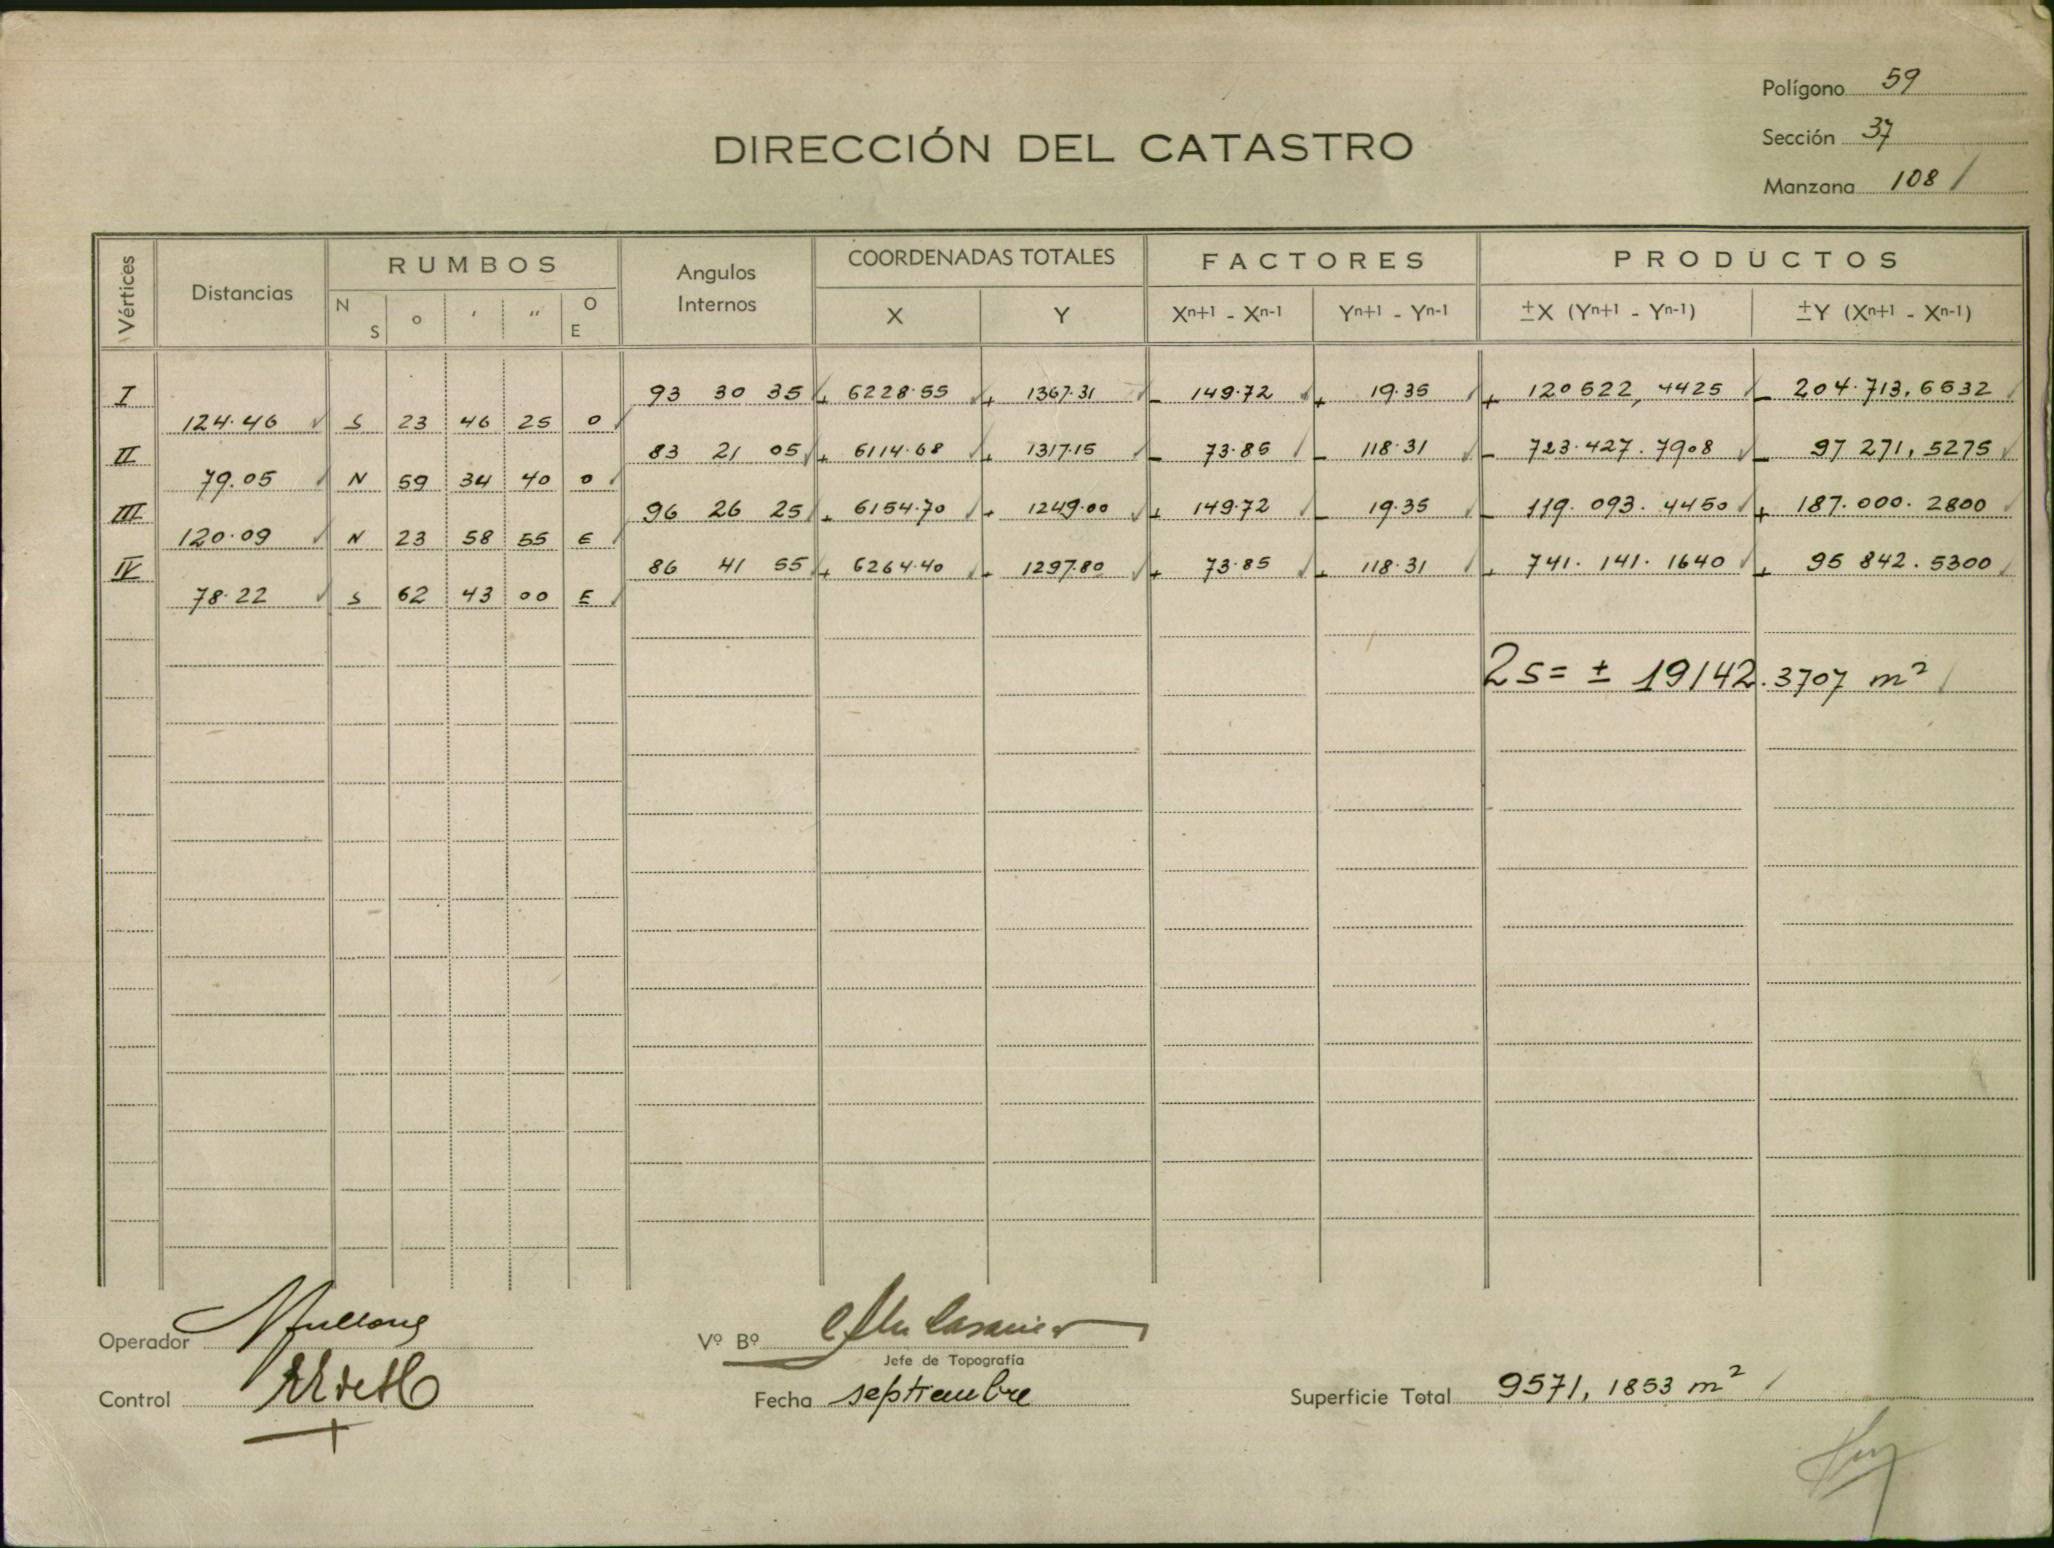 Polígono 59
Sección 37
Manzana 108
DIRECCIÓN DEL CATASTRO
Vértices Distancias RUMBOS Angulos Internos COORDENADAS TOTALES FACTORES PRODUCTOS
N S o ' " O E X Y Xn+1 - Xn-1 Yn+1 - Yn-1 ±X (Yn+1 - Yn-1) ±Y (Xn+1 - Xn-1)
I 93 30 35 + 6228.55 + 1367.31 - 149.72 + 19.35 + 120522,4425 - 204.713,6632
124.46 S 23 46 25 O
II 83 21 05 + 6114.68 + 1317.15 - 73.85 - 118.31 - 723.427.7908 - 97 271,5275
79.05 N 59 34 40 O
III 96 26 25 + 6154.70 + 1249.00 + 149.72 - 19.35 - 119.093.4450 + 187.000.2800
120.09 N 23 58 55 E
IV 86 41 55 + 6264.40 + 1297.80 + 73.85 + 118.31 + 741.141.1640 + 95 842.5300
78.22 S 62 43 00 E
2S = ± 19142.3707 m²
Operador
Vº Bº
Jefe de Topografía
Control
Fecha septiembre
Superficie Total 9571,1853 m²